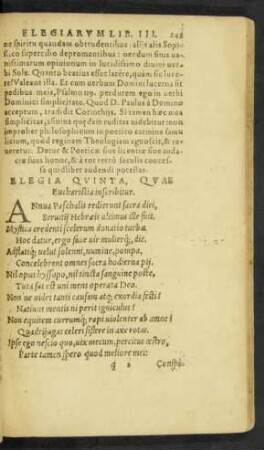 ELEGIARVM LIB. III.
ne spiritu quandam obtrudentibus: alij talis Sopi-
fico supercilio depromentibus: nerdum sinis ua-
nissimarum opinionum in lucidissimo diuini uer-
bi Sole. Quanto beatius esset latere, quàm sic luce-
re? Valeant illa. Et cum uerbum Domini lucerna sit
pedibus meis, Psalmo 119. perdurem ego in uerbi
Dominici simplicitate. Quod D. Paulus à Domino
acceptum, tradidit Corinthijs. Si tamen hæc mea
simplicitas, istiusmodi quædam ruditas uidebitur: non
improber philosophicum in poetico carmine fam
licium, quod reginam Theologiam agnoscit, & re-
ueretur. Detur & Poeticæ sue licentiæ siue auda-
ciæ suus honor, & à tot retrò seculis conces-
sa quidlibet audendi potestas.
ELEGIA QVINTA, QVAE
Eucharistia inscribitur.
ANnua Paschalis redierunt sacra diei,
Seruitij Hebræis ultimus ille fuit.
Mystica credenti scelerum donatio turbæ
Hoc datur, ergo siue uir mulierq́;, die.
Adflatiq́; uelut solenni, numine, pompa,
Concelebrent omnes sacra hodierna pij.
Nil opus hyssopo, nil tincta sanguine poste,
Tuta sat est uni mens operata Deo.
Non ne uidet tanti causam atq́; exordia festi?
Natiuæ mentis ni perit igniculus?
Non equitem currumq́; rapi uiolenter ab amne?
Quadrijugas celeri sistere in axe rotas.
Ipse ego nescio quo, uix mecum, percitus œstro,
Parte tamen spero quod meliore mei:
q 2